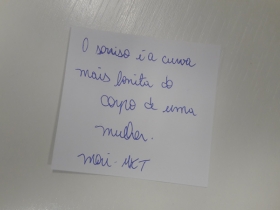 O sorriso é a curva
mais bonita do
corpo de uma
mulher.
Mari - MKT